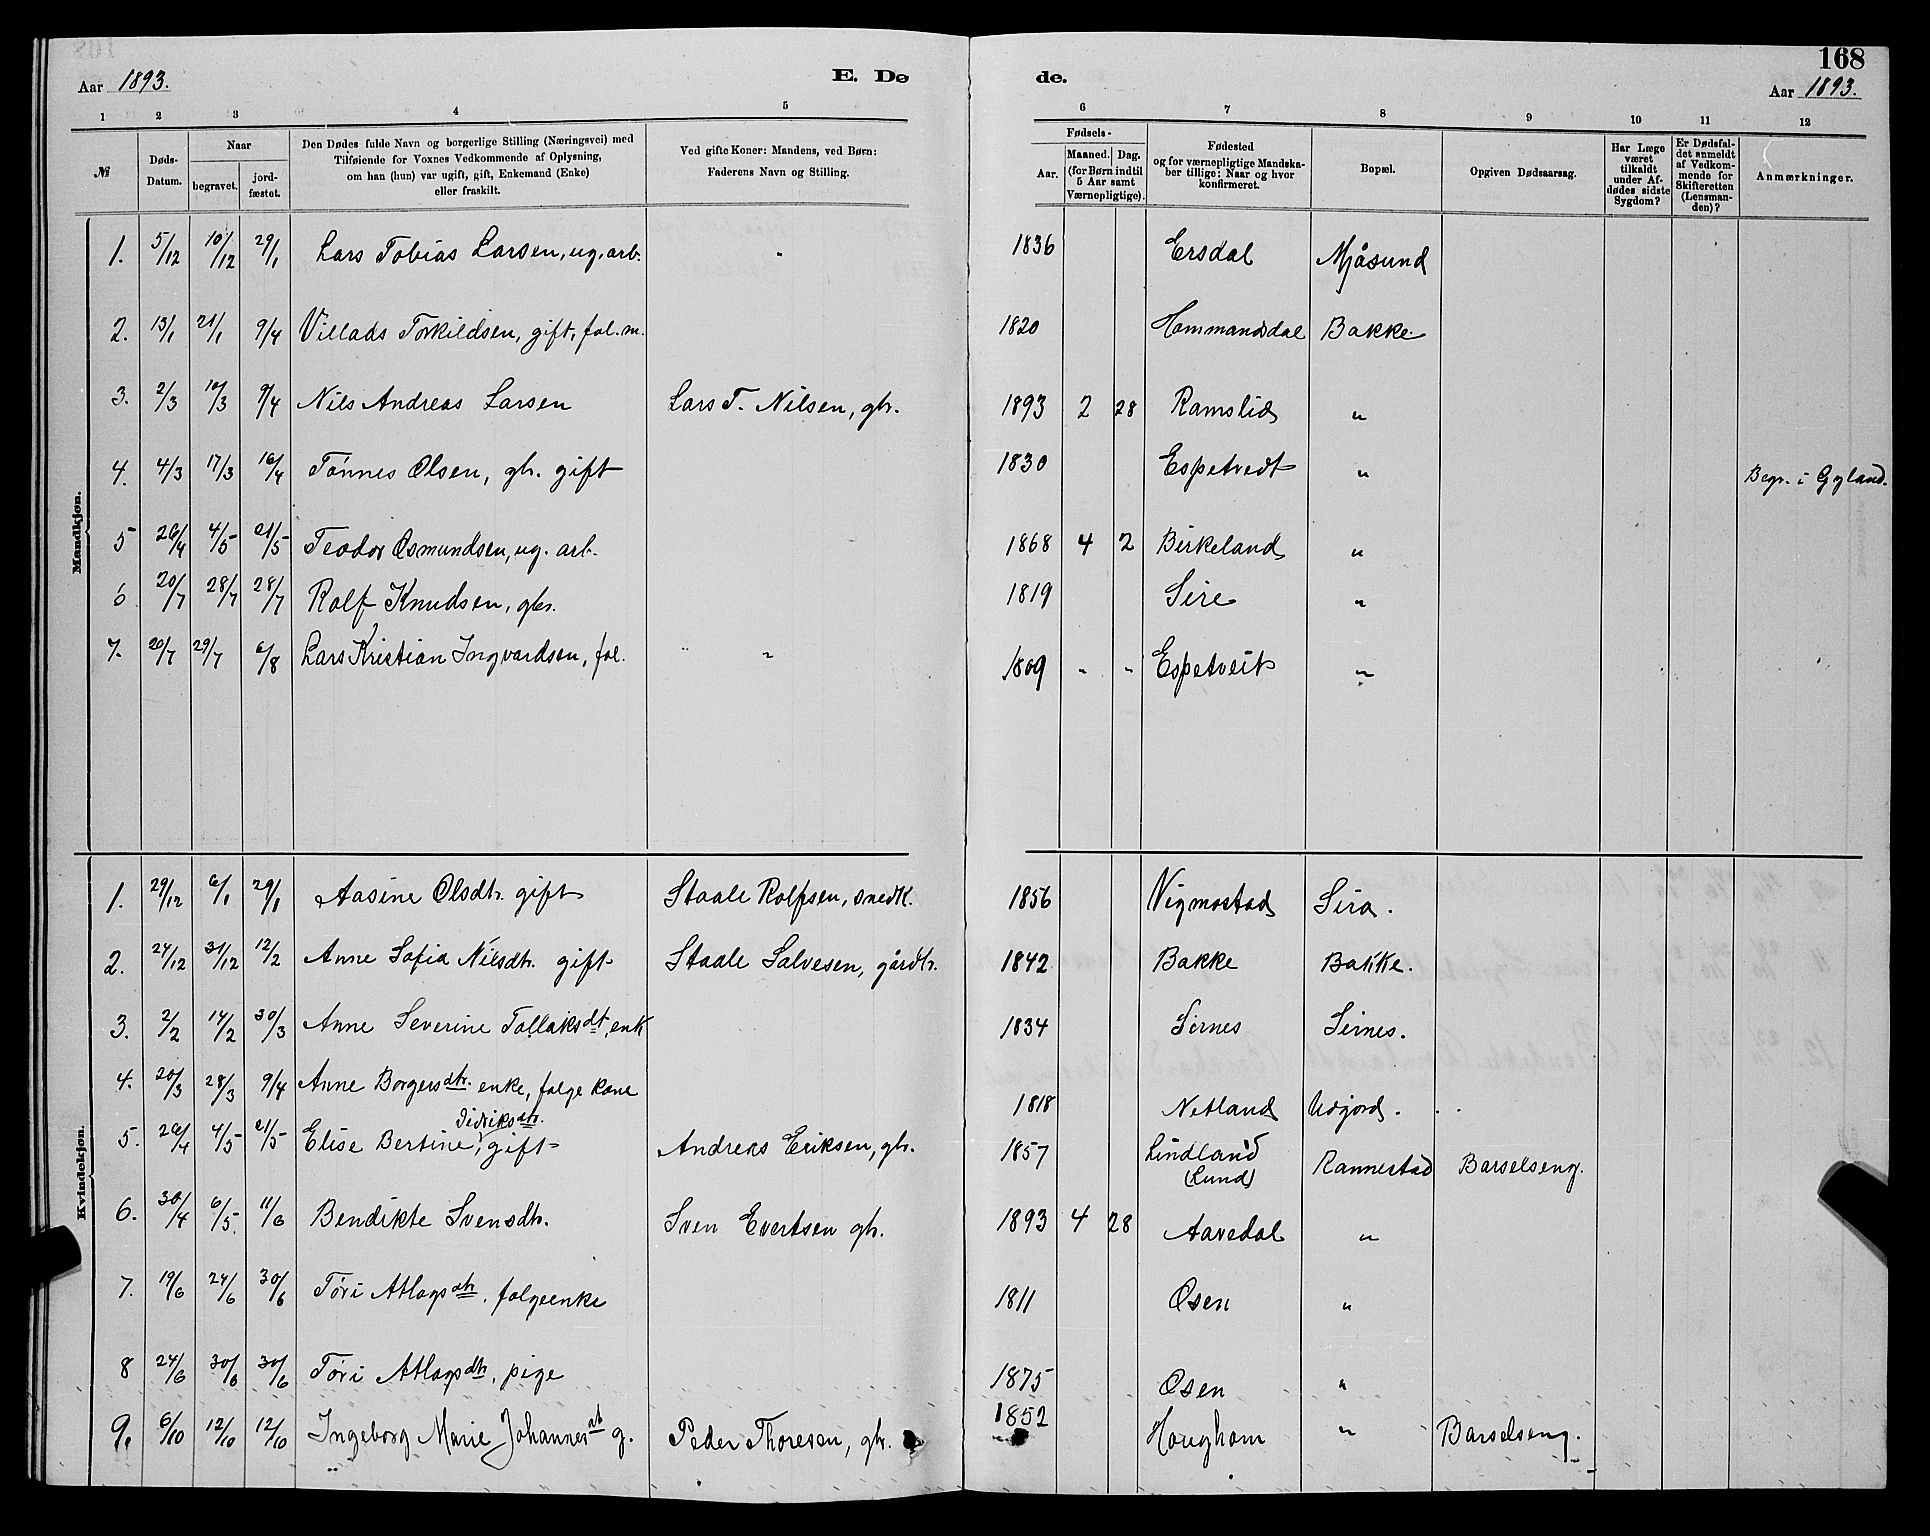 168
Aar 1893. E. Dø de. Aar 1893.
1 2 3 4 5 6 7 8 9 10 11 12
№
Døds-
Datum.
Naar
begravet.
jord-
fæstet.
Den Dødes fulde Navn og borgerlige Stilling (Næringsvei) med
Tilføiende for Voxnes Vedkommende af Oplysning,
om han (hun) var ugift, gift, Enkemand (Enke)
eller fraskilt.
Ved gifte Koner: Mandens, ved Børn:
Faderens Navn og Stilling.
Fødsels-
Aar.
Maaned. Dag.
(for Børn indtil
5 Aar samt
Værnepligtige).
Fødested
og for værnepligtige Mandska-
ber tillige: Naar og hvor
konfirmeret.
Bopæl.
Opgiven Dødsaarsag.
Har Læge
været
tilkaldt
under Af-
dødes sidste
Sygdom?
Er Dødsfal-
det anmeldt
af Vedkom-
mende for
Skifteretten
(Lensman-
den)?
Anmærkninger.
Mandkjøn.
1. 5/12 10/12 29/1 Lars Tobias Larsen, ug. arb. " 1836 Ersdal Mjåsund
2. 13/1 21/1 9/4 Villads Torkildsen, gift, fol. m. 1820 Hommandsdal Bakke
3. 2/3 10/3 9/4 Nils Andreas Larsen Lars T. Nilsen, gbr. 1893 2 28 Ramslid "
4. 4/3 17/3 16/4 Tónnes Olsen, gbr. gift 1830 Espetvedt " Begr. i Gyland.
5 26/4 4/5 21/5 Teodor Osmundsen, ug. arb. 1868 4 2 Birkeland "
6 20/7 28/7 28/7 Rolf Knudsen, gbr. 1819 Sire "
7. 20/7 29/7 6/8 Lars Kristian Ingvardsen, fol. " " 1809 " " Espetveit "
Kvindekjøn.
1. 29/12 6/1 29/1 Aasine Olsdtr. gift Staale Rolfsen, snedk. 1856 Vigmostad Sira.
2. 24/12 31/12 12/2 Anne Sofia Nilsdtr. gift Staale Salvesen, gårdbr. 1842 Bakke Bakke.
3. 2/2 14/2 30/3 Anne Severine Tollaksdt, enk 1834 Sirnes Sirnes.
4. 20/3 28/3 9/4 Anne Borgersdtr. enke, folge kone 1818 Netland Udjord.
Didriksdtr.
5. 26/4 4/5 21/5 Elise Bertine, gift Andreas Eriksen, gbr. 1857 Lindland Rannestad Barselseng.
(Lund)
6. 30/4 6/5 11/6 Bendikte Svensdtr. Sven Evertsen gbr. 1893 4 28 Aavedal "
7. 19/6 24/6 30/6 Tóri Atlagsdtr, folgeenke 1811 Osen "
8 24/6 30/6 30/6 Tóri Atlagsdtr, pige 1875 Osen "
9. 6/10 12/10 12/10 Ingeborg Marie Johannesdt g. Peder Thoresen, gbr. 1852 Houghom " Barselseng.